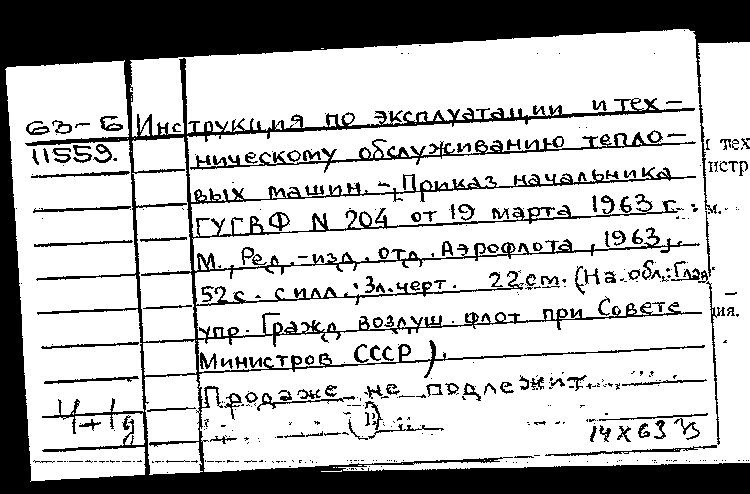 63-Б Инструкция по эксплуатации и тех-
11559. ническому обслуживанию тепло-
вых машин. - Приказ начальника
ГУГВФ N 204 от 19 марта 1963 г. :
М., Ред.-изд. отд. Аэрофлота, 1963,.
52 с. с илл.; 3 л. черт. 22 см. (На обл: Глав
упр. Гражд воздуш. флот при Совете
Министров СССР).
Продаже не подлежит.
4+1д
14 X 63
тех
истр
м.
ия.